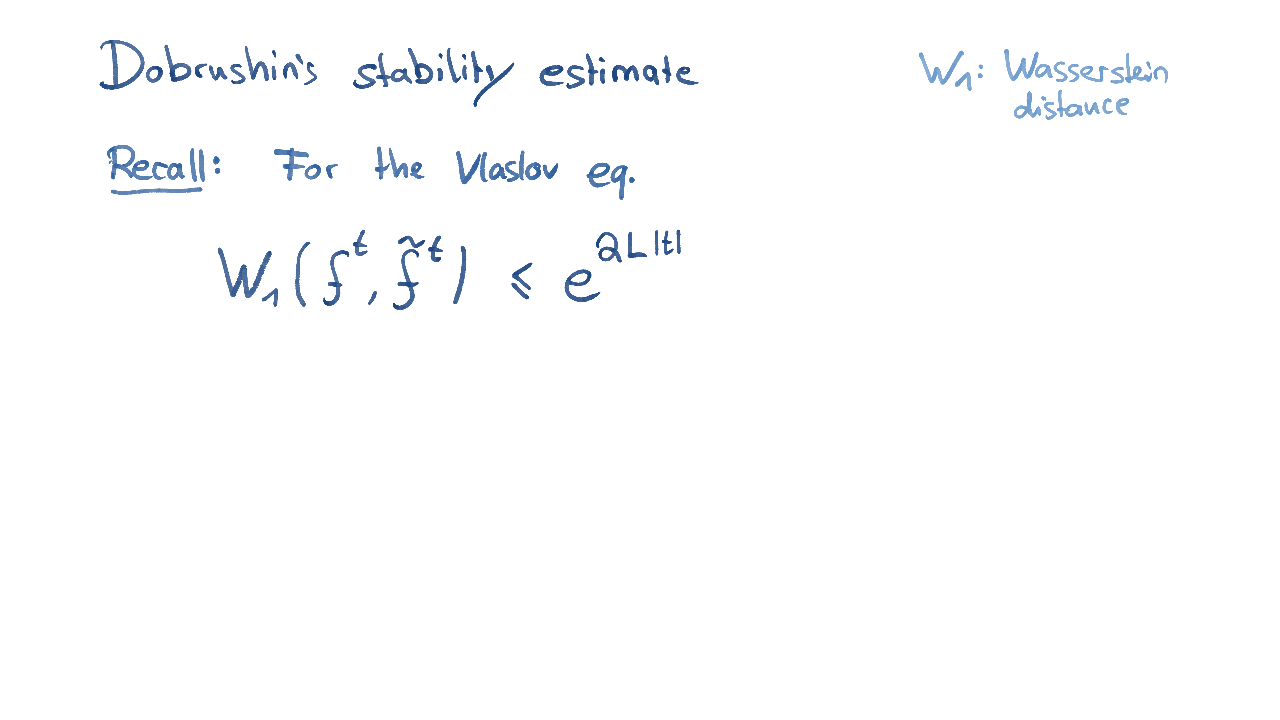 Dobrushin's stability estimate
W₁: Wasserstein
distance
Recall: For the Vlaslov eq.
W₁(fᵗ, f̃ᵗ) ≤ e^{2L|t|}